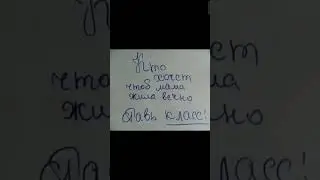 Кто
хочет
чтоб мама
жила вечно
Ставь класс!